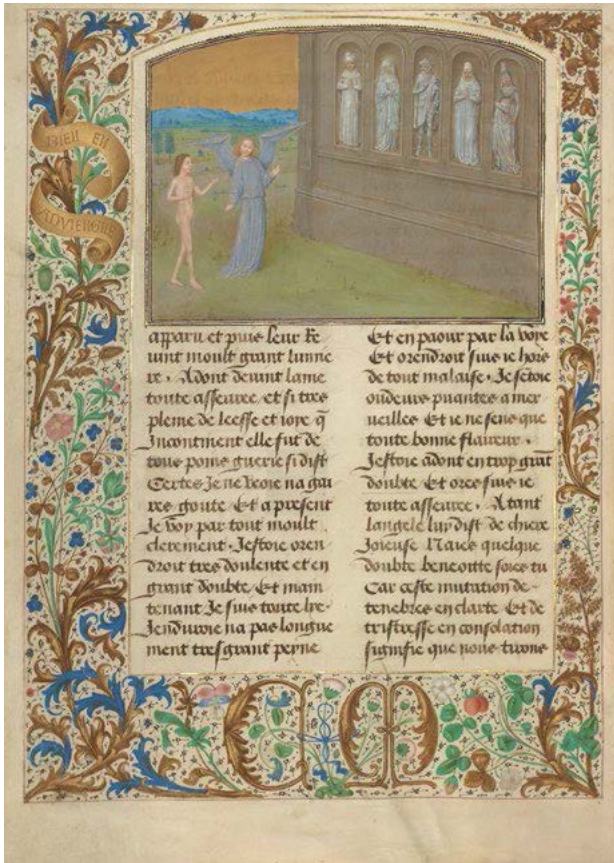 BIEN EN
ADVIENGNE
apparu et puis leur Re
uint moult grant lumie
re . Adont deuint lame
toute asseuree et si tres
pleine de leesse et ioye q̄
Incontinent elle fut de
tous poins guerie si dist
Certes Je ne veoie na gai
res goute Et a present
Je voy par tout moult
clerement . Jestoie oren
droit tres doulente et en
grant doubte Et main
tenant Je suis toute lie .
Jenduroie na pas longue
ment tresgrant peyne
Et en paour par la voye
Et orendroit suis ie hors
de tout malaise . Je sentoie
oudeurs puantes a mer
ueilles Et ie ne sens que
toute bonne flaireur .
Jestoie adont en trop grāt
doubte Et ores suis ie
toute asseuree . A tant
langele luy dist de chiere
Joieuse Naies quelque
doubte beneoitte soies tu
Car ceste mutation de
tenebres en clarte Et de
tristresse en consolation
signifie que nous tirons
C M